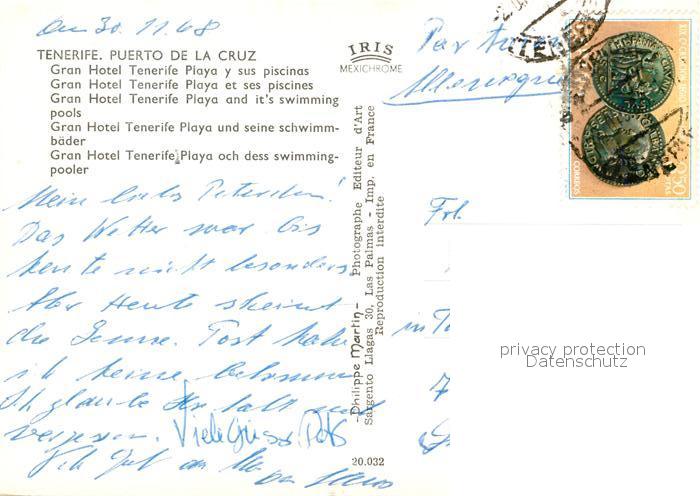 den 30. 11. 68
TENERIFE. PUERTO DE LA CRUZ
Gran Hotel Tenerife Playa y sus piscinas
Gran Hotel Tenerife Playa et ses piscines
Gran Hotel Tenerife Playa and it's swimming
pools
Gran Hotel Tenerife Playa und seine schwimm-
bäder
Gran Hotel Tenerife Playa och dess swimming-
pooler
Mein liebes
Das Wetter war bis
heute nicht besonders
Aber Heute scheint
die Sonne. Post habe
ich keine bekommen
Ich glaube Ihr habt
vergessen. Viele Grüsse
IRIS
MEXICHROME
Philippe Martin - Photographe Editeur d'Art
Sargento Llagas 30, Las Palmas - Imp. en France
Reproduction interdite
20.032
Par
Allemagne
CORREOS
Frl.
in
privacy protection
Datenschutz